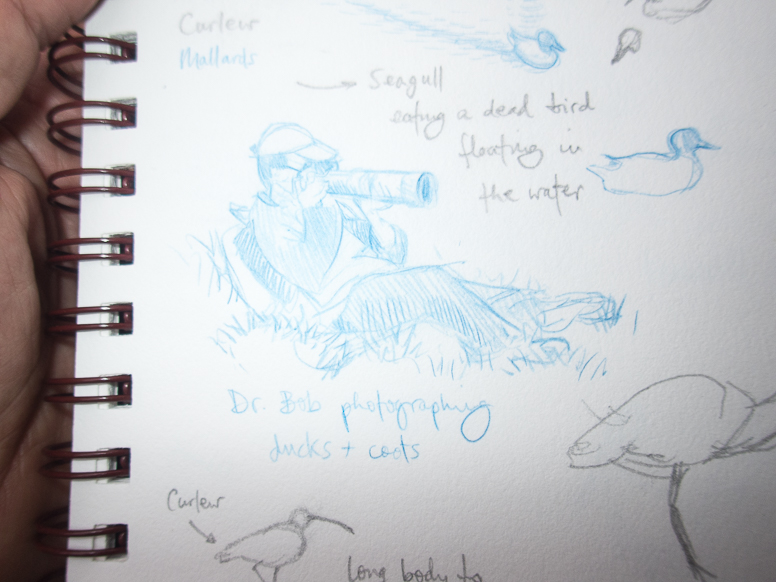 Curlew
Mallards
Seagull
eating a dead bird
floating in
the water
Dr. Bob photographing
ducks + coots
Curlew
long body to